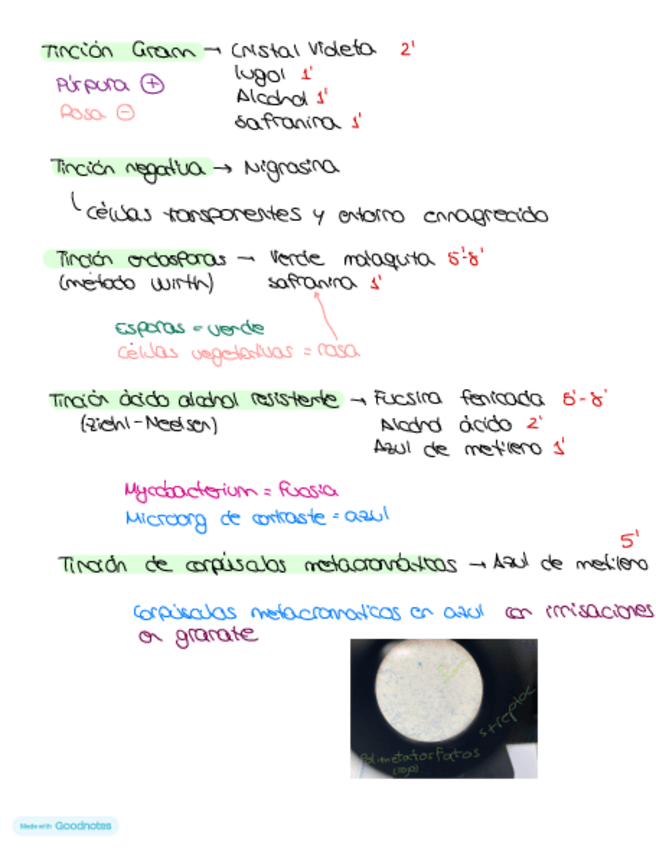 Tinción Gram → Cristal Violeta 2'
Púrpura ⊕ Lugol 1'
Rosa ⊖ Alcohol 1'
Safranina 1'
Tinción negativa → Nigrosina
Células transparentes y entorno ennegrecido
Tinción endosporas → Verde malaquita 5'-8'
(método Wirth) safranina 1'
Esporas = verde
Células vegetativas = rosa
Tinción ácido alcohol resistente → Fucsina fenicada 5'-8'
(Ziehl-Neelsen) Alcohol ácido 2'
Azul de metileno 1'
Mycobacterium = Fucsia
Microorg de contraste = azul
5'
Tinción de corpúsculos metacromáticos → Azul de metileno
Corpúsculos metacromáticos en azul con irrisaciones
en granate
streptoc
Polimetafosfatos
(rojo)
Made with Goodnotes